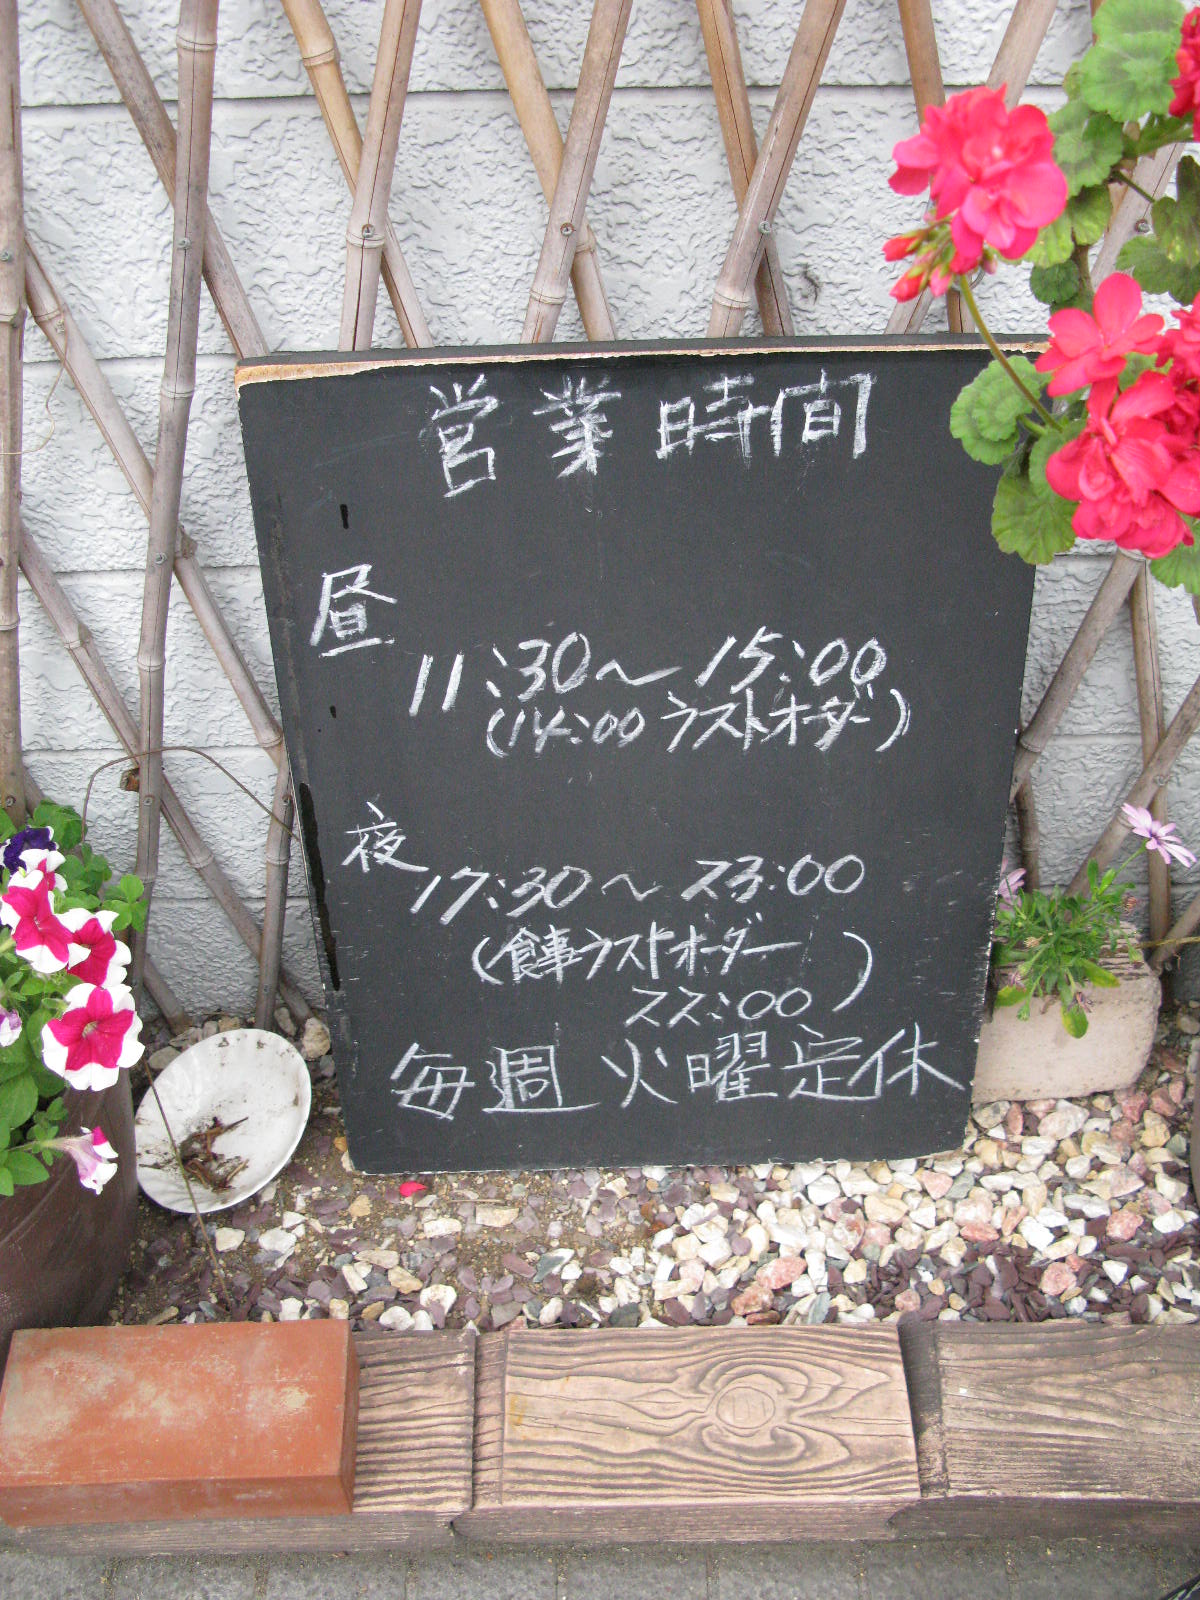 営業時間
昼
11:30〜15:00
(14:00 ラストオーダー)
夜
17:30〜23:00
(食事ラストオーダー
22:00)
毎週 火曜定休